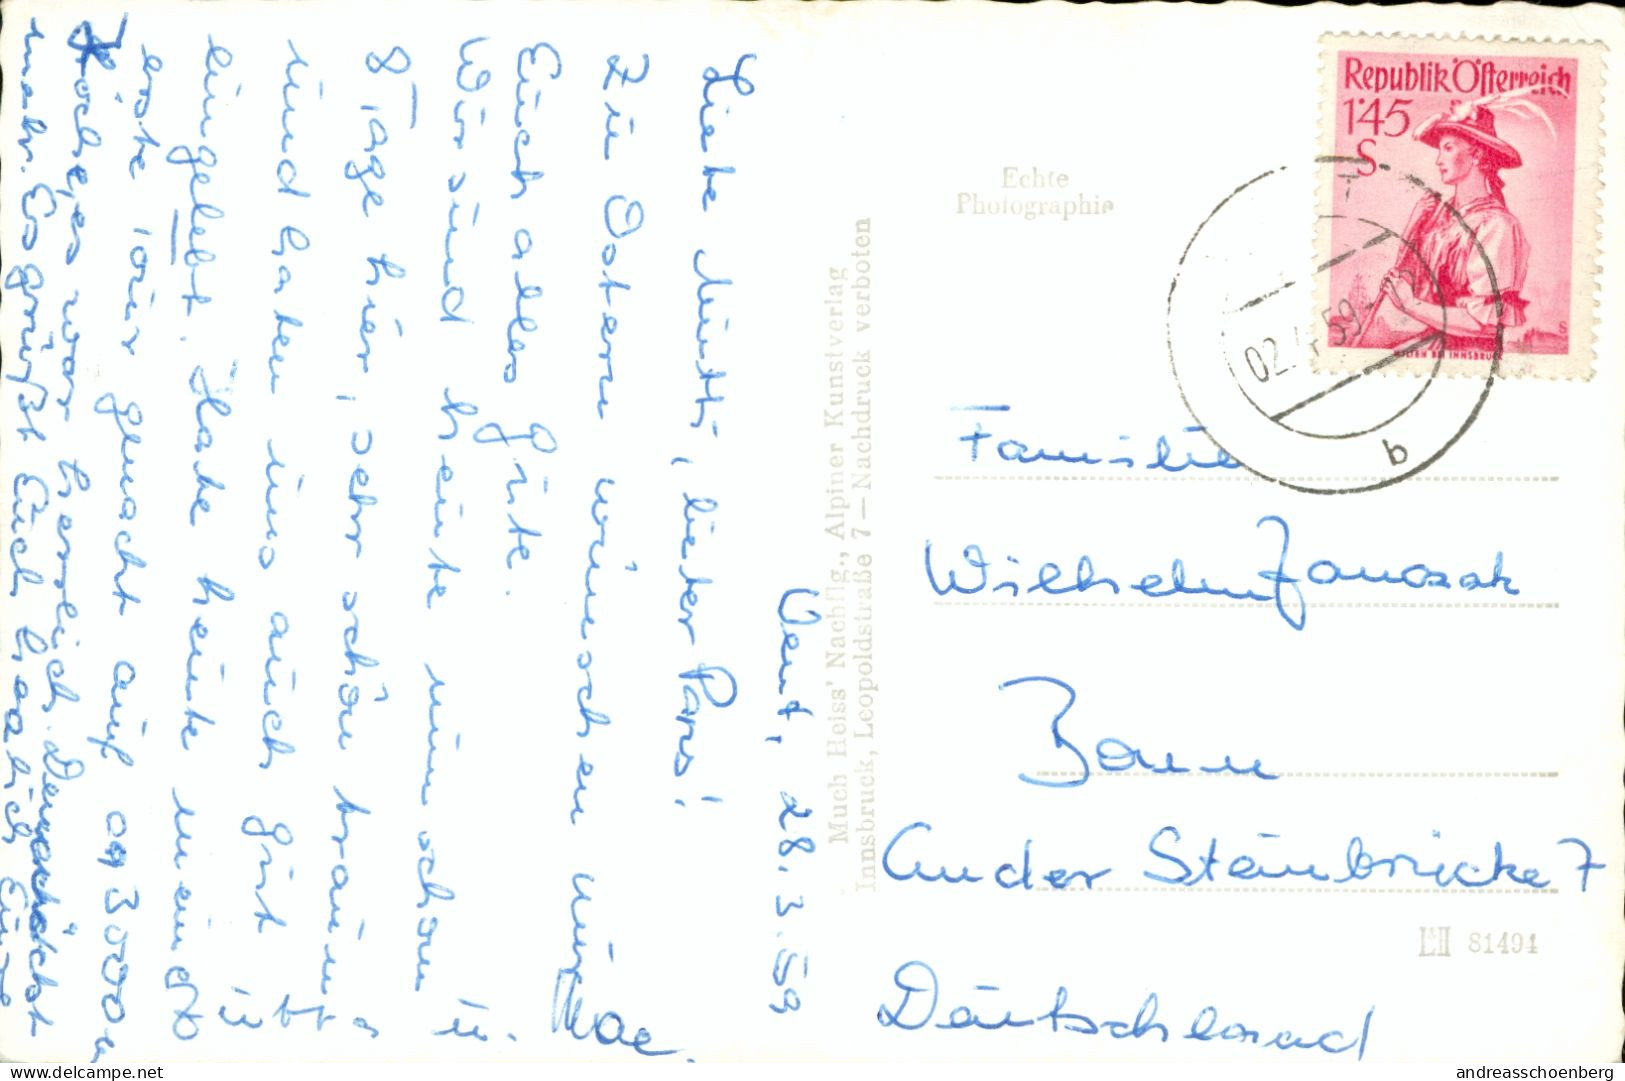 Vent, 28. 3. 59
Liebe Mutti, lieber Papa!
Zu Ostern wünschen wir
Euch alles Gute.
Wir sind heute nun schon
8 Tage hier, sehr schön braun
und haben uns auch gut
eingelebt. Habe heute meine
erste Tour gemacht auf ca 3000 m
Höhe, es war herrlich. Demnächst
mehr. Es grüßt Euch herzlich Eure
Familie
Wilhelm Janossek
Bonn
An der Steinbrücke 7
Deutschland
Echte
Photographie
Much Heiss' Nachflg., Alpiner Kunstverlag
Innsbruck, Leopoldstraße 7 — Nachdruck verboten
81494
Republik Österreich
1'45
S
WILTEN BEI INNSBRUCK
02. 4. 59
b
andreasschoenberg
delcampe.net